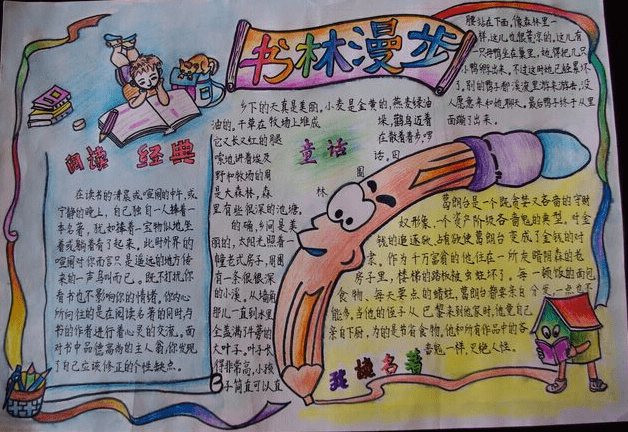 书林漫步
阅读 经典
在读书的清晨或喧闹的中午,或
宁静的晚上,自己独自一人捧着一
本名著,犹如捧着一宝物似地,坐
着或躺着看了起来,此时外界的
喧闹对你而言只是遥远的地方传
来的一声鸟叫而已。既不打扰你
看书也不影响你的情绪,你内心
所向往的是在阅读名著的同时与
书的作者进行着心灵的交流。面
对书中品德高尚的主人翁,你发现
了自己应该修正的个性缺点。
童话
乡下的天真是美丽。小麦是金黄的,燕麦绿油
油的。干草在牧场上堆成
垛,鹳鸟迈着
它又长又红的腿
在散着步,啰
嗦地讲着埃及
话。田
野和牧场的周
围
是大森林,森
林
里有些很深的池塘。
的确,乡间是美
丽的,太阳光照着一
幢老式房子,周围
有一条很深
的小溪。从墙角
那儿一直到水里
全盖满了牛蒡的
大叶子。叶子长
得非常高,小孩
子简直可以直
腰站在下面,像森林里一
样,这儿也很荒凉的。这儿有
一只母鸭坐在窠里,她得把几只
小鸭孵出来。不过这时她已经累坏
了。别的鸭子都在溪流里游来游去,没
人愿意来和她聊天。最后鸭子终于从里
面蹦了出来。
葛朗台是一个既贪婪又吝啬的守财
奴形象,一个资产阶级吝啬鬼的典型。对金
钱的追逐欲、占有欲使葛朗台变成了金钱的对
家,作为千万富翁的他,住在一所灰暗阴森的老
房子里,楼梯的踏板被虫蛀坏了。每一顿饭的面包、
食物、每天要点的蜡烛,葛朗台都要亲自分发一点也不
能多,当他的侄子从巴黎来到他家时,他竟自己
亲自下厨,为的是节省食物。他和所有作品中的吝
啬鬼一样,灭绝人性。
我读名著